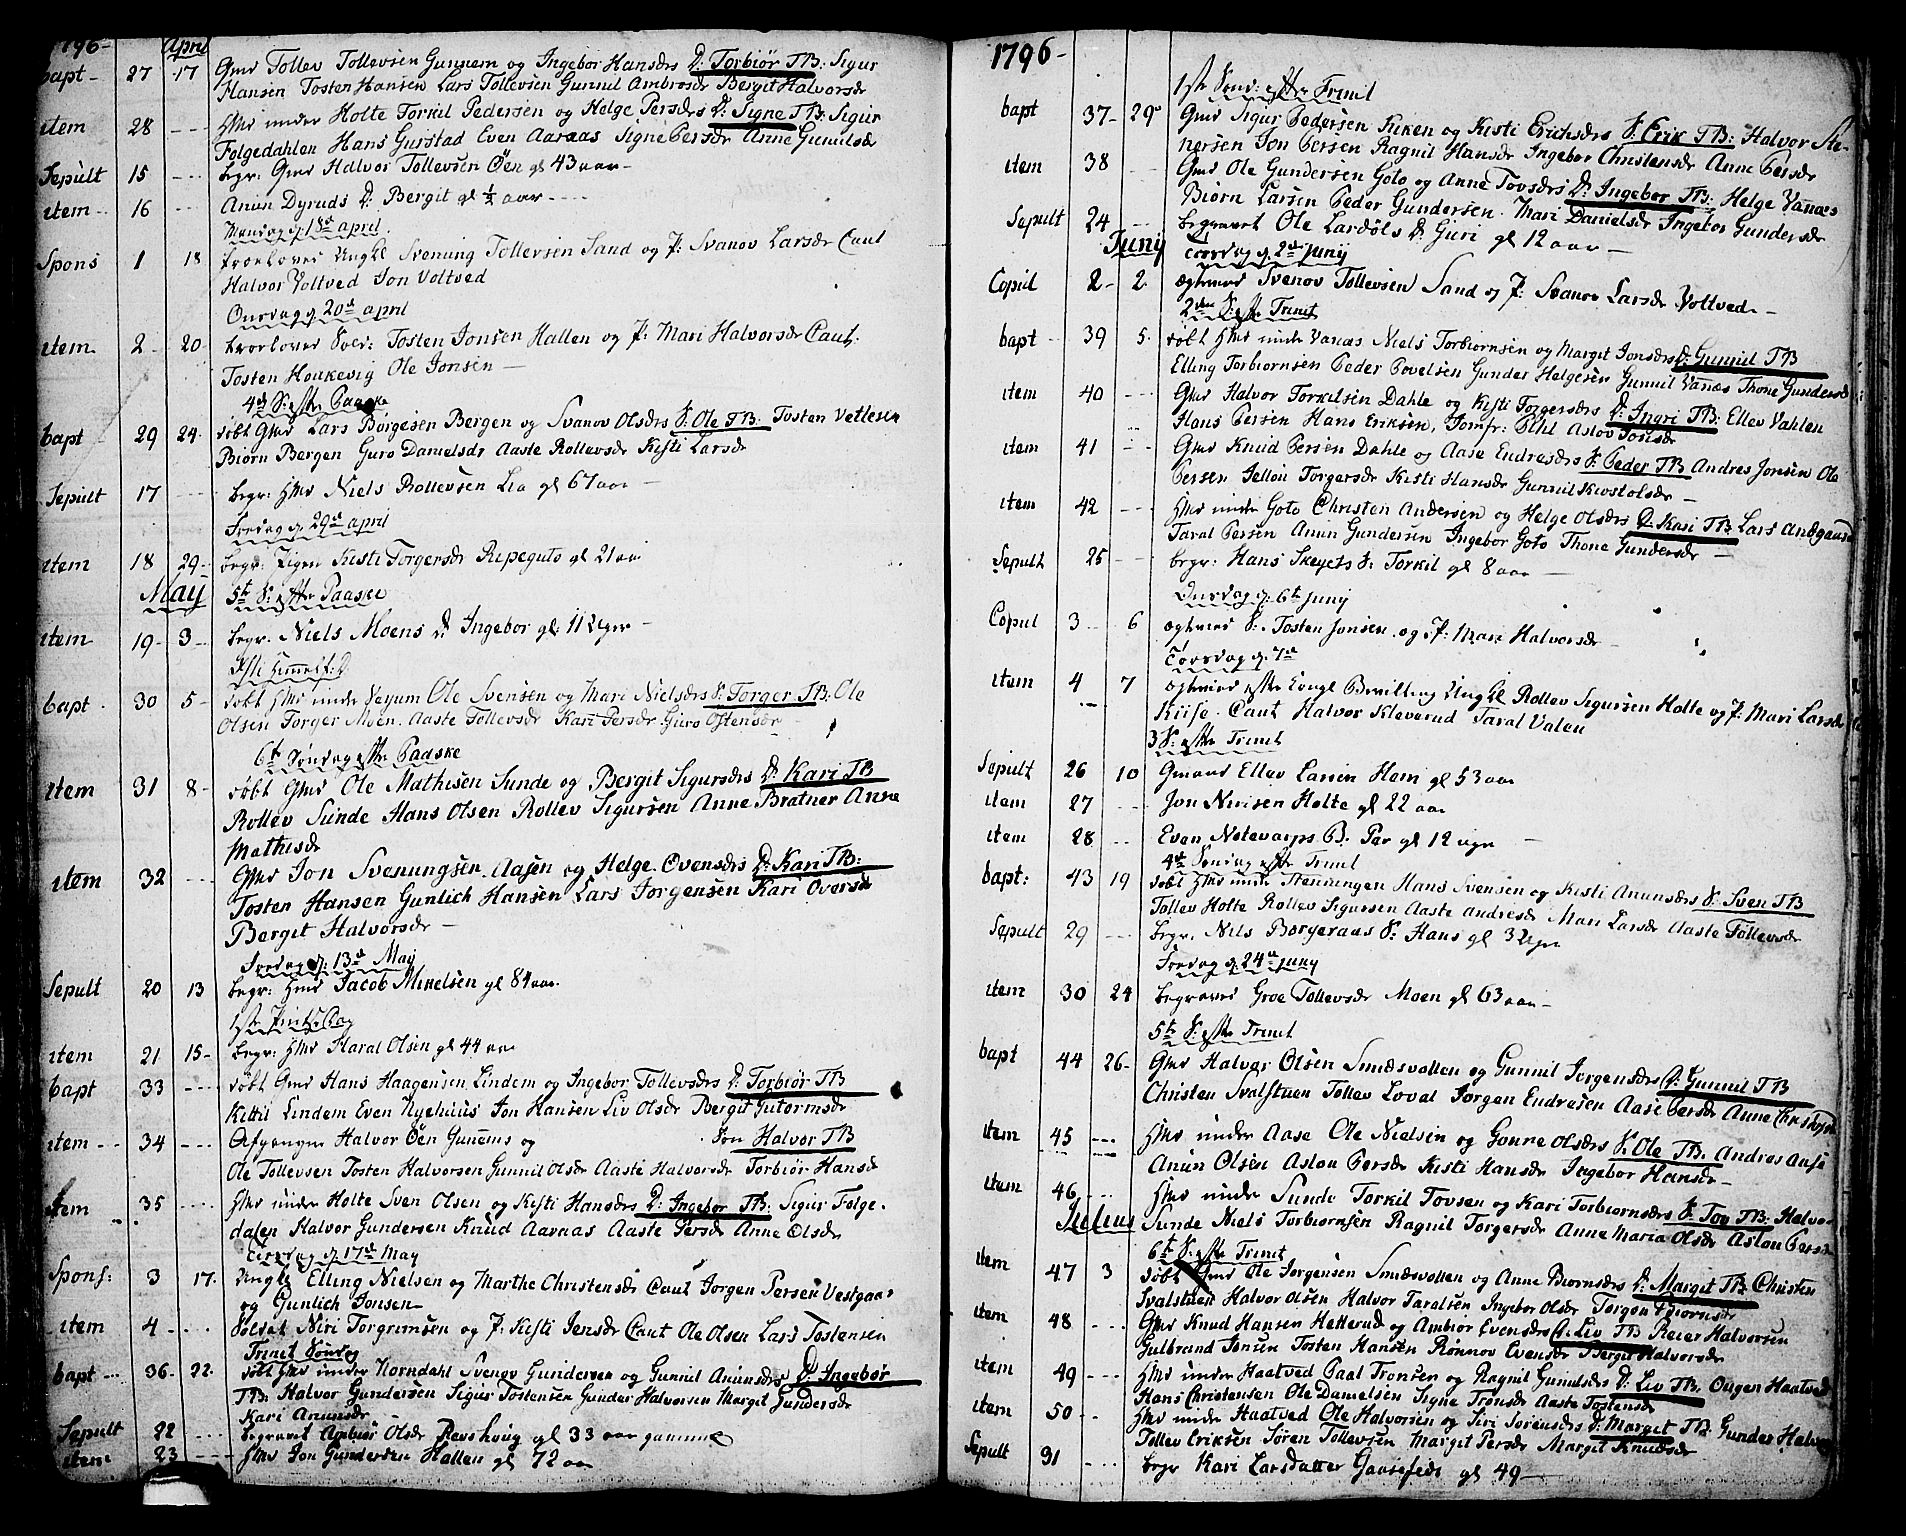 1796- April
bapt- 27 17 Gmd Tollev Tollevsen Gunnem og Ingebor Hansdrs D: Torbiør TB: Sigur
Hansen Tosten Hansen Lars Tollevsen Gunnil Ambrosdr Bergit Halvorsdr
item 28 --- Hmd under Holte Torkil Pedersen og Helge Persdrs D: Signe TB: Sigur
Folgedahlen Hans Gurstad Even Aaraas Signe Persdr Anne Gunnulsdr
Sepult 15 --- begr: Gmd Halvor Tollevsen Öen gl 43 aar-
item-- 16 --- Anun Dyruds D: Bergit gl ½ aar
Mandag d. 18de april.
Spons 1 18 troelovet Ungkl Svenung Tollevsen Sand og P: Svanov Larsdr Caut
Halvor Voltved Jon Voltved
Onsdag d 20de april
item 2- 20- troelovet Tosten Jonsen Hallen og P: Mari Halvorsdr Caut.
Tosten Houkevig Ole Jonsen-
4de S: efter Paaske
bapt 29 24- døbt Gmd Lars Børgesen Bergen og Svanov Olsdrs S. Ole TB: Tosten Vetlesen
Biørn Bergen Guro Danielsdr Aaste Rollevsdr Kisti Larsdr
Sepult 17 --- begr: Hmd Niels Rollevsen Lia gl 67 aar-
Fredag d. 29de april
item 18 29- begr: Pigen Kisti Torgersdr Ripeguto gl 21 aar
May 5te S: efter Paaske
item 19- 3- begr. Niels Moens D. Ingebor gl: 11 Uger-
Christi Himmelf: D.
bapt. 30 5- døbt Hmd under Veyum Ole Svensen og Mari Nielsdrs S. Torger TB: Ole
Olsen Torger Moen. Aaste Tollevsdr Kari Persdr Guro Ostensdr-
6te Søndag efter Paaske
item 31 8- døbt Gmd Ole Mathisen Sunde og Bergit Sigursdrs D: Kari TB
Rollev Sunde Hans Olsen Rollev Sigursen Anne Bratner Anne
Mathisdr
item 32 --- Gmd Jon Svenungsen Aasen og Helge Ovensdrs D: Kari TB:
Tosten Hansen Gunlich Hansen Lars Jorgensen Kari Oversdr
Bergit Halvorsdr-
Fredag d. 13de May
Sepult 20 13 begr: Hmd Jacob Mikelsen gl 84 aar.
1ste Pintse Dag
item 21 15- begr: Hmd Haral Olsen gl 44 aar
bapt 33 --- døbt Gmd Hans Haagensen Lindem og Ingebor Tollevsdrs D: Torbiør TB
Kittil Lindem Even Jon Hansen Liv Olsdr Bergit Gutormsdr
item-- 34 --- Afgangne Halvor Öen Gunems og Søn Halvor TB
Ole Tollevsen Tosten Halvorsen Gunnil Olsdr Aaste Halvorsdr Torbiør Hansdr
item 35 --- Hmd under Holte Sven Olsen og Kisti Hansdrs D: Ingebor TB: Sigur Folge-
dalen Halvor Gundersen Knud Aarnas Aaste Persdr Anne Olsdr
Tirsdag d 17de May
Spons: 3 17. Ungkl Elling Nielsen og Marthe Christensdr Caut Jorgen Persen Vestgaar
og Gunlich Jonsen-
item 4- --- Soldat Niri Torgrimsen og P: Kisti Jensdr Caut Ole Olsen Lars Tostensen
Trinit Søndag
bapt--- 36- 22. døbt Hmd under Norndahl Svenov Gundersen og Gunnil Anunsdrs D: Ingebor
TB: Halvor Gundersen Sigur Tostensen Gunder Halvorsen Margit Gundersdr
Kari Anunsdr-
Sepult 22 --- begravet Ambiør Olsdr Revshoug gl 33 aar gammel
item 23 --- Hmd Jon Gundersen Hallen gl 72 aar
1796-
1ste Sønd: efter Trinit
bapt 37- 29de Gmd Sigur Pedersen Kiken og Kisti Erichsdrs S. Erik TB: Halvor Ste-
nersen Jon Persen Ragnil Hansdr Ingebor Christensdr Anne Persdr
item 38 --- Gmd Ole Gundersen Goto og Anne Tovsdrs D: Ingebor TB: Helge Vanæs
Biørn Larsen Peder Gundersen. Mari Danielsdr Ingebor Gundersdr
Sepult 24 --- begravet Ole Lardøls D: Guri gl 12 aar-
Junij Torsdag d. 2de Junij
Copul 2- 2. ægteviet Svenov Tollevsen Sand og P: Svanov Larsdr Voltved-
2den S. efter Trinit
bapt 39 5. døbt Hmd under Vanæs Niels Torbiørnsen og Margit Jonsdrs D: Gunnil TB
Elling Torbiornsen Peder Povelsen Gunder Helgesen Gunnil Vanæs Thone Gundersdr
item 40 --- Gmd Halvor Torkilsen Dahle og Kisti Torgersdrs D: Ingri TB: Ellev Vahlen
Hans Persen Hans Eriksen, Jomfr: Aslov Tovsdr
item 41 --- Gmd Knud Persen Dahle og Aase Endresdrs S: Peder TB Andres Jonsen Ole
Persen Tellou Torgersdr Kisti Hansdr Gunnil Kiostolsdr-
item 42 --- Hmd under Goto Christen Andersen og Helge Olsdrs D. Kari TB Lars Andgaard
Taral Persen Anun Gundersen Ingebor Goto Thone Gundersdr-
Sepult 25 --- begr: Hans Skeyets S: Torkil gl 8 aar-
Onsdag d: 6te Junij
Copul 3-- 6 ægteviet S. Tosten Jonsen og P: Mari Halvorsdr
Torsdag d. 7de
item 4 7 ægteviet efter Kongl Bevilling Ungkl Rollev Sigursen Holte og P: Mari Larsdr
Kiise. Caut Halvor Kleverud Taral Valen
3 S: efter Trinit
Sepult 26 10 Gmand Ellev Larsen Hem gl 53 aar
item 27 --- Jon Nirisen Holte gl 22 aar
item 28 -- Even Notevarps B. Per gl 12 uger-
4de Søndag efter Trinit
bapt: 43 19 døbt Hmd under Stenningen Hans Svensen og Kisti Anunsdrs S: Sven TB
Tollev Holte Rollev Sigursen Aaste Andresdr Mari Larsdr Aaste Tollevsdr
Sepult 29 --- begr. Nils Borgeraas S: Hans gl 3 Uger
Fredag d 24de Juny
item 30 24 begravet Groe Tollevsdr Moen gl 63 aar-
5te S: efter Trinit
bapt 44 26- Gmd Halvor Olsen Smæsvollen og Gunnil Jorgensdrs D: Gunnil TB
Christen Svalstuen Tollev Loval Jorgen Endresen Aase Persdr Anne Christophdr
item 45 --- Hmd under Aase Ole Nielsen og Gonne Olsdrs S: Ole TB. Andres Aase
Anun Olsen Aslou Persdr Kisti Hansdr Ingebor Hansdr-
item 46 --- Hmd under Sunde Torkil Tovsen og Kari Torbiornsdrs S. Tov TB: Halvor
Julius Sunde Niels Torbiornsen Ragnil Torgersdr Anne Maria Olsdr Aslou Persdr
6te S: efter Trinit
item 47 3 døbt Gmd Ole Jorgensen Smæsvollen og Anne Biornsdrs D: Margit TB Christen
Svalstuen Halvor Olsen Halvor Taralsen Ingebor Olsdr Torgon Biornsdr
item 48 --- Gmd Knud Hansen Hetterud og Ambiør Evensdrs D. Liv TB Reier Halvorsen
Gulbrand Jonsen Tosten Hansen Rønnov Evensdr Bergit Halvorsdr
item 49 --- Hmd under Haatved Paal Tronsen og Ragnil Gunulsdrs D: Liv TB. Ougen Haatved
Hans Christensen Ole Danielsen Signe Tronsdr Aaste Tostensdr
item 50 -- Hmd under Haatved Ole Halvorsen og Siri Sorensdrs D: Margit TB: Gunder Halvor
Tollev Eriksen Søren Tollevsen Margit Persdr Margit Knudsdr
Sepult 31 --- begr Kari Larsdatter Gaasefeds gl 49-